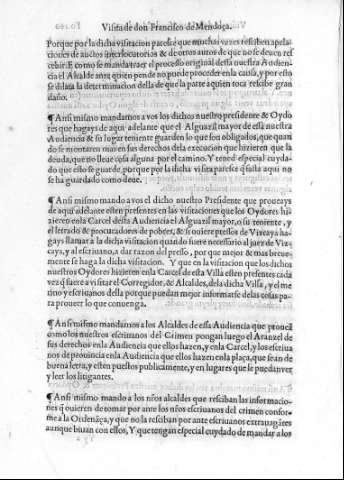 Visita de don Francisco de Mendoça.
Porque por la dicha visitacion parece que muchas vezes resciben apela-
ciones de autos interlocutorios & de otros autos de que no se deuen res
cebir & como se manda traer el processo original dessa nuestra Audien-
cia el Alcalde ante quien pende no puede proceder en la causa, y por esto
se dilata la determinacion della de que la parte a quien toca rescibe gran
daño.
¶ Ansi mismo mandamos a vos los dichos nuestro presidente & Oydo
res que hagays de aqui adelante que el Alguazil mayor de essa nuestra
Audiencia & su lugar teniente guarden lo que son obligados, que quan
do se mentaren mas en sus derechos de la execucion que hizieren que la
deuda, que no lleue cosa alguna por el camino. Y tened especial cuyda-
do que esto se guarde, porque por la dicha visita parece q̃ fasta aqui no
se ha guardado como deue.
¶ Ansi mismo mando a vos el dicho nuestro Presidente que proueays
de aqui adelante esten presentes en las visitaciones que los Oydores hi-
zieren en la Carcel dessa Audiencia el Alguazil mayor, o su teniente, y
el letrado & procuradores de pobres, & si ouiere presos de Vizcaya ha-
gays llamar a la dicha visitacion quando fuere necessario al juez de Viz
caya, y al escriuano, a dar razon del preso, por que mejor & mas breue-
mente se haga la dicha visitacion. Y que en la visitacion que los dichos
nuestros Oydores hizieren en la Carcel de essa Villa esten presentes cada
vez q̃ fuere a visitar el Corregidor, & Alcaldes, de la dicha Villa, y el me
rino y escriuanos della porque puedan mejor informarse de las cosas pa-
ra proueer lo que conuenga.
¶ Ansi mismo mandamos a los Alcaldes de essa Audiencia que prouea
como los nuestros escriuanos del Crimen pongan luego el Aranzel de
sus derechos en la Audiencia que ellos hazen, y en la Carcel, y los escriua
nos de prouincia en la Audiencia que ellos hazen en la plaça, que sean de
buena letra, y esten puestos publicamente, y en lugares que le puedan ver
y leer los litigantes.
¶ Ansi mismo mando a los nr̃os alcaldes que resciban las informacio-
nes q̃ ouieren de tomar por ante los nr̃os escriuanos del crimen confor-
me a la Ordenãça, y que no la resciban por ante escriuanos extrauagãtes
aunque biuan con ellos, Y que tengan especial cuydado de mandar a los